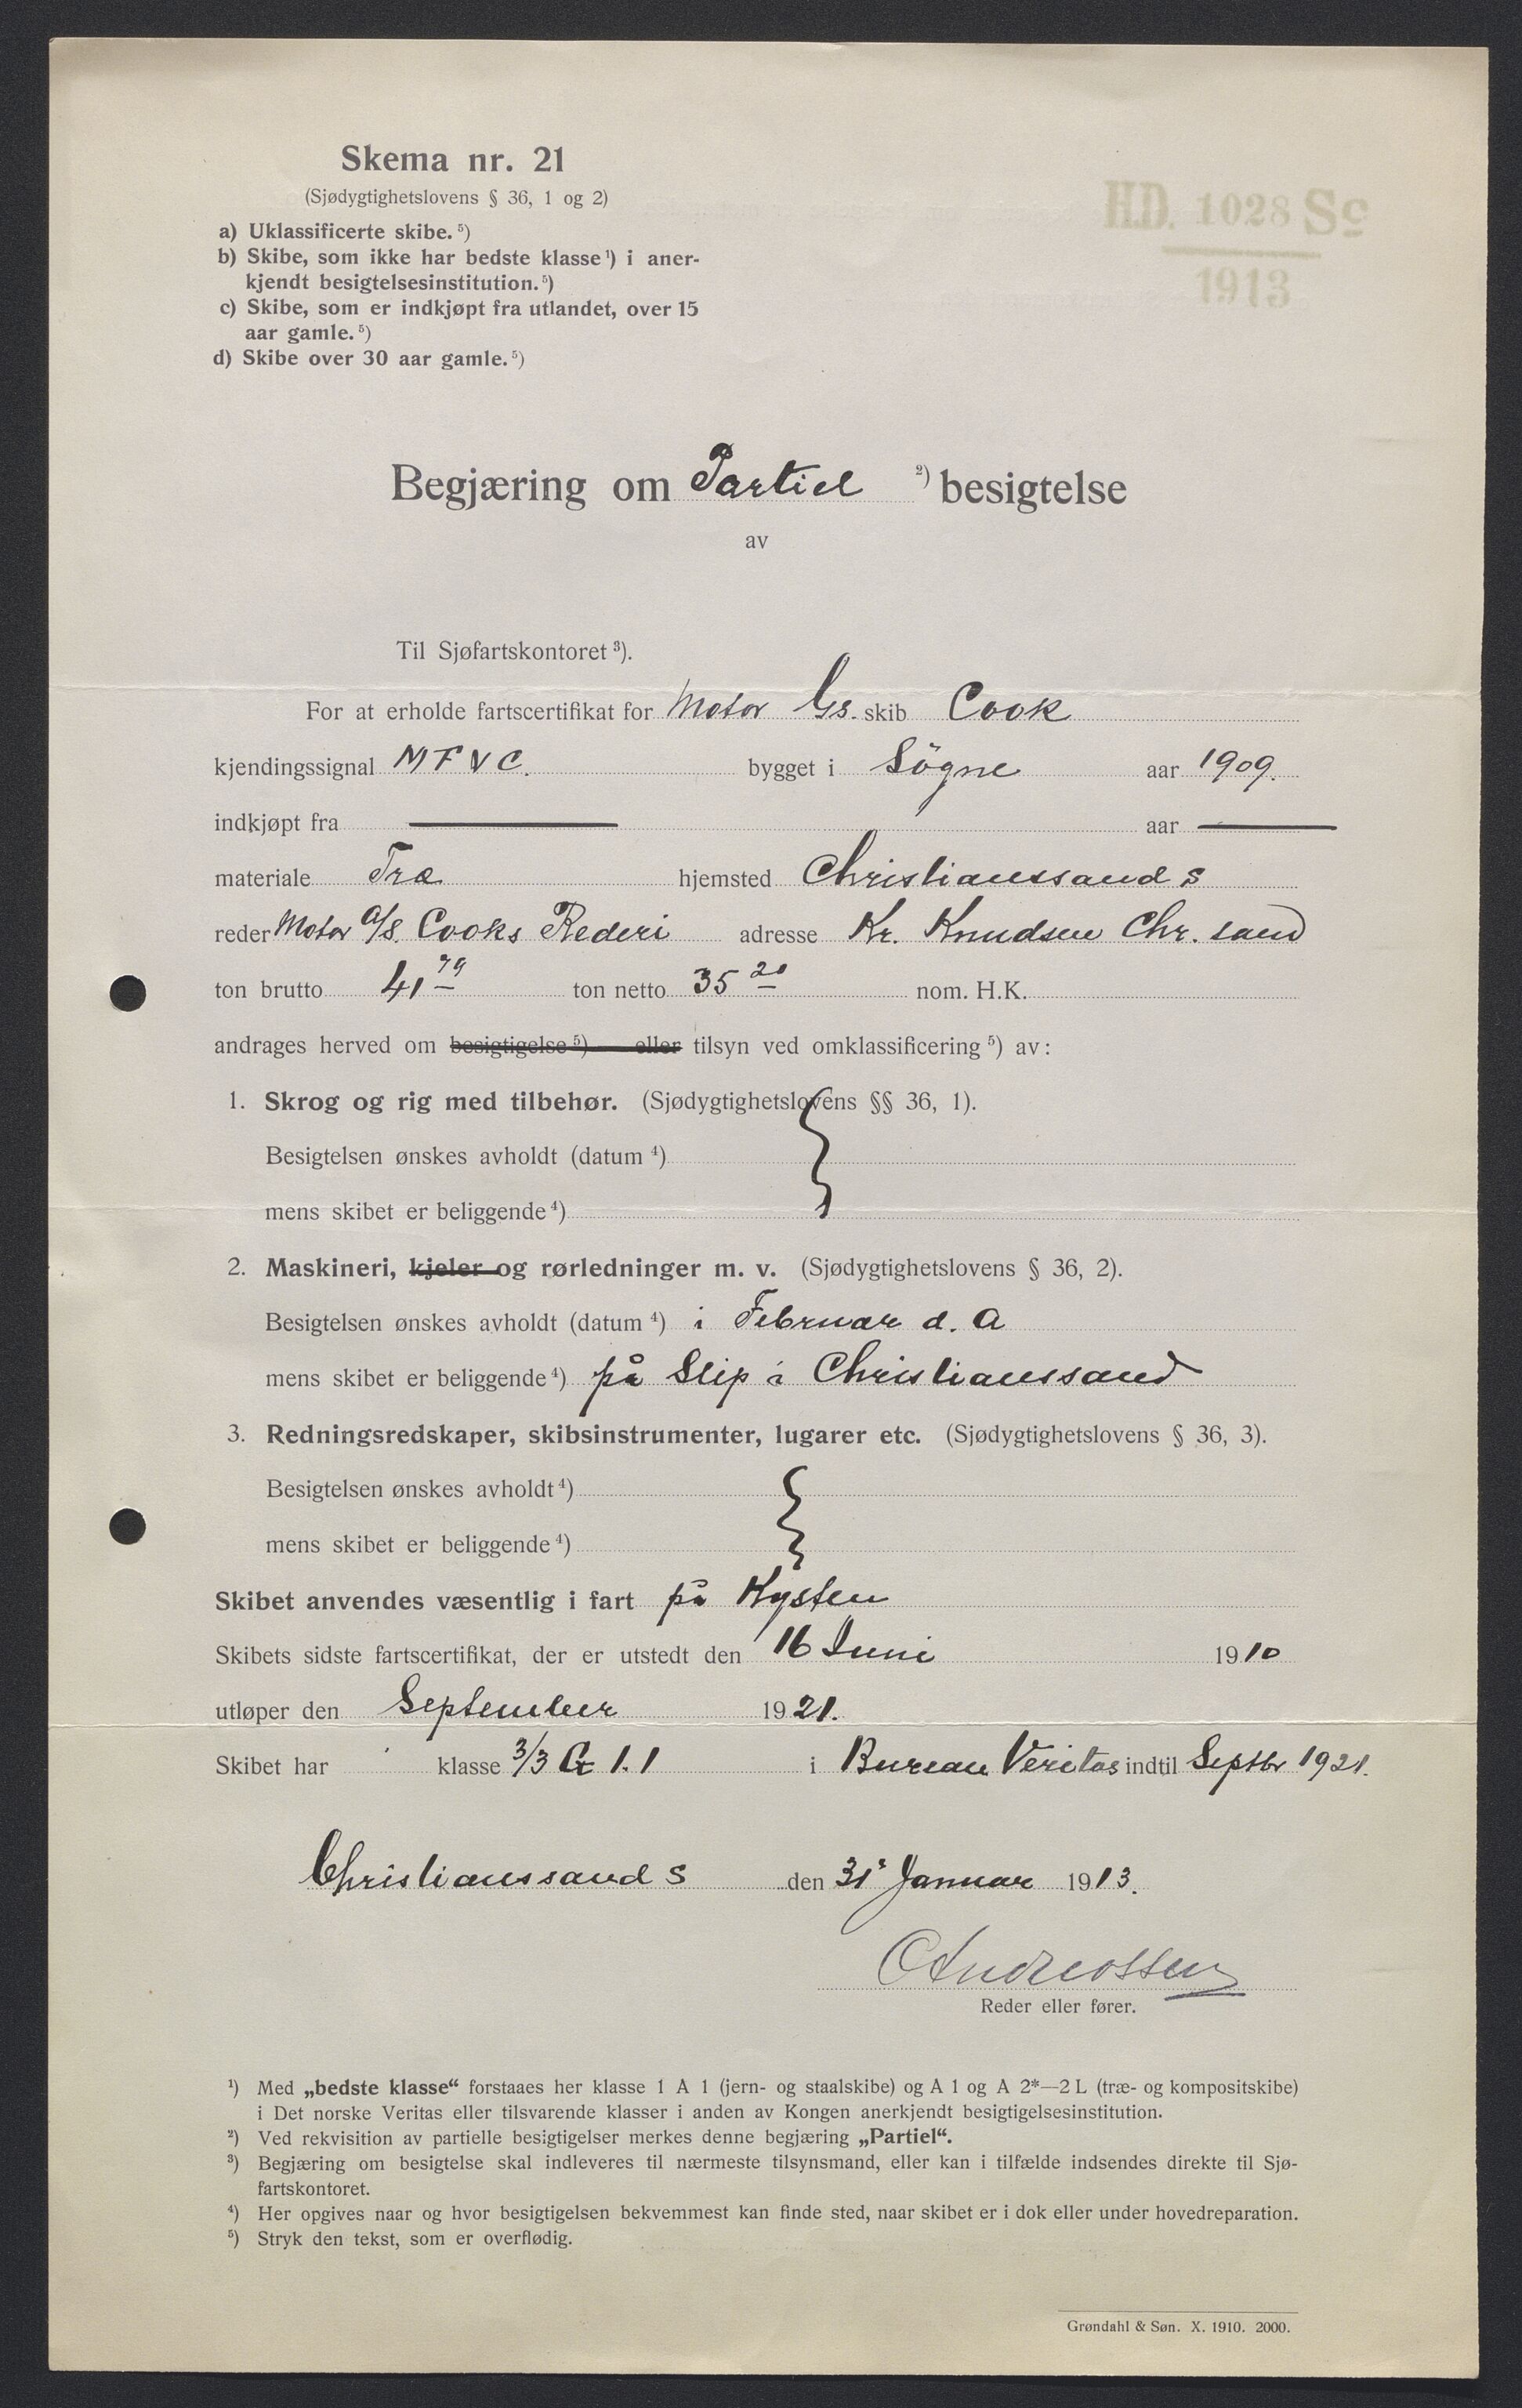 Skema nr. 21
(Sjødygtighetslovens § 36, 1 og 2)
a) Uklassificerte skibe. ⁵)
b) Skibe, som ikke har bedste klasse ¹) i aner-
kjendt besigtelsesinstitution. ⁵)
c) Skibe, som er indkjøpt fra utlandet, over 15
aar gamle. ⁵)
d) Skibe over 30 aar gamle. ⁵)
H.D. 1028 Sc
1913
Begjæring om Partiel ²) besigtelse
av
Til Sjøfartskontoret ³).
For at erholde fartscertifikat for Motor Gs. skib Cook
kjendingssignal MFVC. bygget i Sögne aar 1909.
indkjøpt fra aar
materiale Træ hjemsted Christianssand S
reder Motor A/S. Cooks Rederi adresse Kr. Knudsen Chr. sand
ton brutto 41 79 ton netto 35 20 nom. H.K.
andrages herved om besigtigelse ⁵) — eller tilsyn ved omklassificering ⁵) av:
1. Skrog og rig med tilbehør. (Sjødygtighetslovens §§ 36, 1).
Besigtelsen ønskes avholdt (datum ⁴)
mens skibet er beliggende ⁴)
2. Maskineri, kjeler og rørledninger m. v. (Sjødygtighetslovens § 36, 2).
Besigtelsen ønskes avholdt (datum ⁴) i Februar d. A
mens skibet er beliggende ⁴) på Slip i Christianssand
3. Redningsredskaper, skibsinstrumenter, lugarer etc. (Sjødygtighetslovens § 36, 3).
Besigtelsen ønskes avholdt ⁴)
mens skibet er beliggende ⁴)
Skibet anvendes væsentlig i fart på Kysten
Skibets sidste fartscertifikat, der er utstedt den 16 Juni 1910
utløper den September 1921.
Skibet har klasse 3/3 G 1.1 i Bureau Veritas indtil Septbr 1921.
Christianssand S den 31' Januar 1913.
C Andreassen
Reder eller fører.
¹) Med „bedste klasse“ forstaaes her klasse 1 A 1 (jern- og staalskibe) og A 1 og A 2*—2 L (træ- og kompositskibe)
i Det norske Veritas eller tilsvarende klasser i anden av Kongen anerkjendt besigtigelsesinstitution.
²) Ved rekvisition av partielle besigtigelser merkes denne begjæring „Partiel“.
³) Begjæring om besigtelse skal indleveres til nærmeste tilsynsmand, eller kan i tilfælde indsendes direkte til Sjø-
fartskontoret.
⁴) Her opgives naar og hvor besigtigelsen bekvemmest kan finde sted, naar skibet er i dok eller under hovedreparation.
⁵) Stryk den tekst, som er overflødig.
Grøndahl & Søn. X. 1910. 2000.